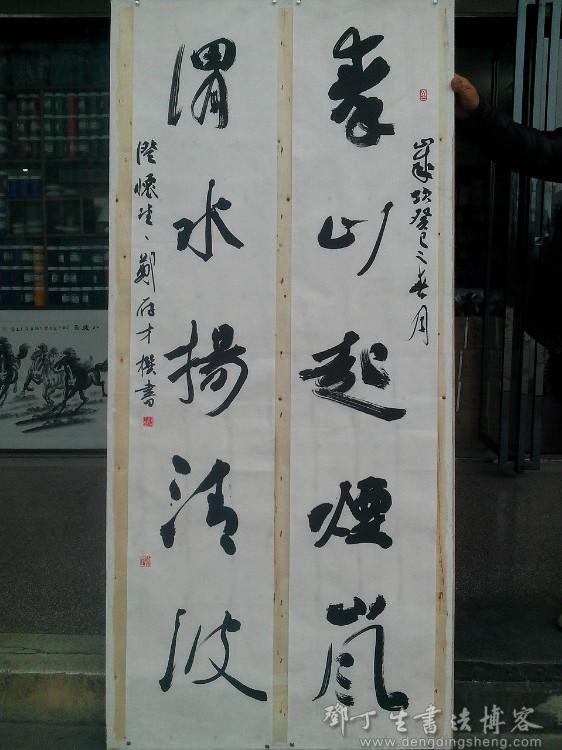 歲次癸巳之春月
秦山起煙嵐
渭水揚清波
澄懷堂主鄭才撰書
鄧丁生書法博客
www.dengdingsheng.com